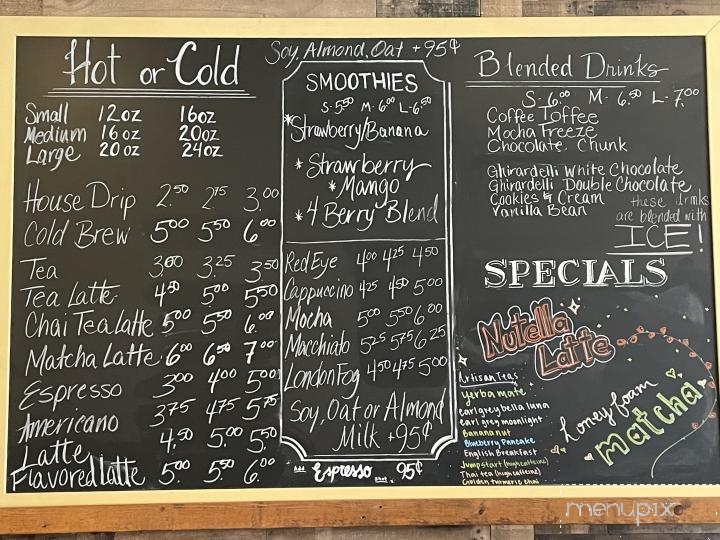 Hot or Cold
Small 12oz 16oz
Medium 16oz 20oz
Large 20oz 24oz
House Drip 2.50 2.75 3.00
Cold Brew 5.00 5.50 6.00
Tea 3.00 3.25 3.50
Tea Latte 4.50 5.00 5.50
Chai Tea Latte 5.00 5.50 6.00
Matcha Latte 6.00 6.50 7.00
Espresso 3.00 4.00 5.00
Americano 3.75 4.75 5.75
Latte 4.50 5.00 5.50
Flavored latte 5.00 5.50 6.00
Soy, Almond, Oat +95¢
SMOOTHIES
S-5.50 M-6.00 L-6.50
*Strawberry/Banana
*Strawberry
*Mango
*4 Berry Blend
Red Eye 4.00 4.25 4.50
Cappuccino 4.25 4.50 5.00
Mocha 5.00 5.50 6.00
Macchiato 5.25 5.75 6.25
London Fog 4.50 4.75 5.00
Soy, Oat or Almond
Milk +95¢
Add Espresso Shot 95¢
Blended Drinks
S-6.00 M-6.50 L-7.00
Coffee Toffee
Mocha Freeze
Chocolate Chunk
Ghirardelli White Chocolate
Ghirardelli Double Chocolate
Cookies & Cream
Vanilla Bean
these drinks
are blended with
ICE!
SPECIALS
Nutella
Latte
Artisan Teas
Yerba mate
earl grey bella luna
earl grey moonlight
Banana nut
Blueberry Pancake
English Breakfast
Jumpstart (high caffeine)
Thai tea (high caffeine)
Golden turmeric chai
honey foam
matcha
menupix